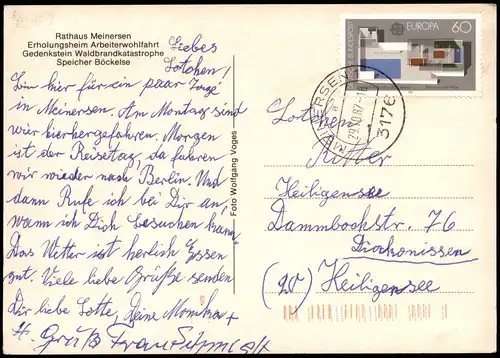 Rathaus Meinersen
Erholungsheim Arbeiterwohlfahrt
Gedenkstein Waldbrandkatastrophe
Speicher Böckelse
Liebes
Lotchen!
bin hier für ein paar Tage
in Meinersen. Am Montag sind
wir hierhergefahren. Morgen
ist der Reisetag, da fahren
wir wieder nach Berlin. Und
dann Rufe ich bei Dir an,
wann ich Dich besuchen kann,
Das Wetter ist herlich Essen
gut. Viele liebe Grüße senden
Dir liebe Lotte, Deine Monika +
H. Gruß Frau
Foto Wolfgang Voges
DEUTSCHE BUNDESPOST
EUROPA 60
MEINERSEN
29.10.87-18
3176
Lotchen
Ritter
Heiligensee
Dambockstr. 76
Diakonissen
(20) Heiligensee